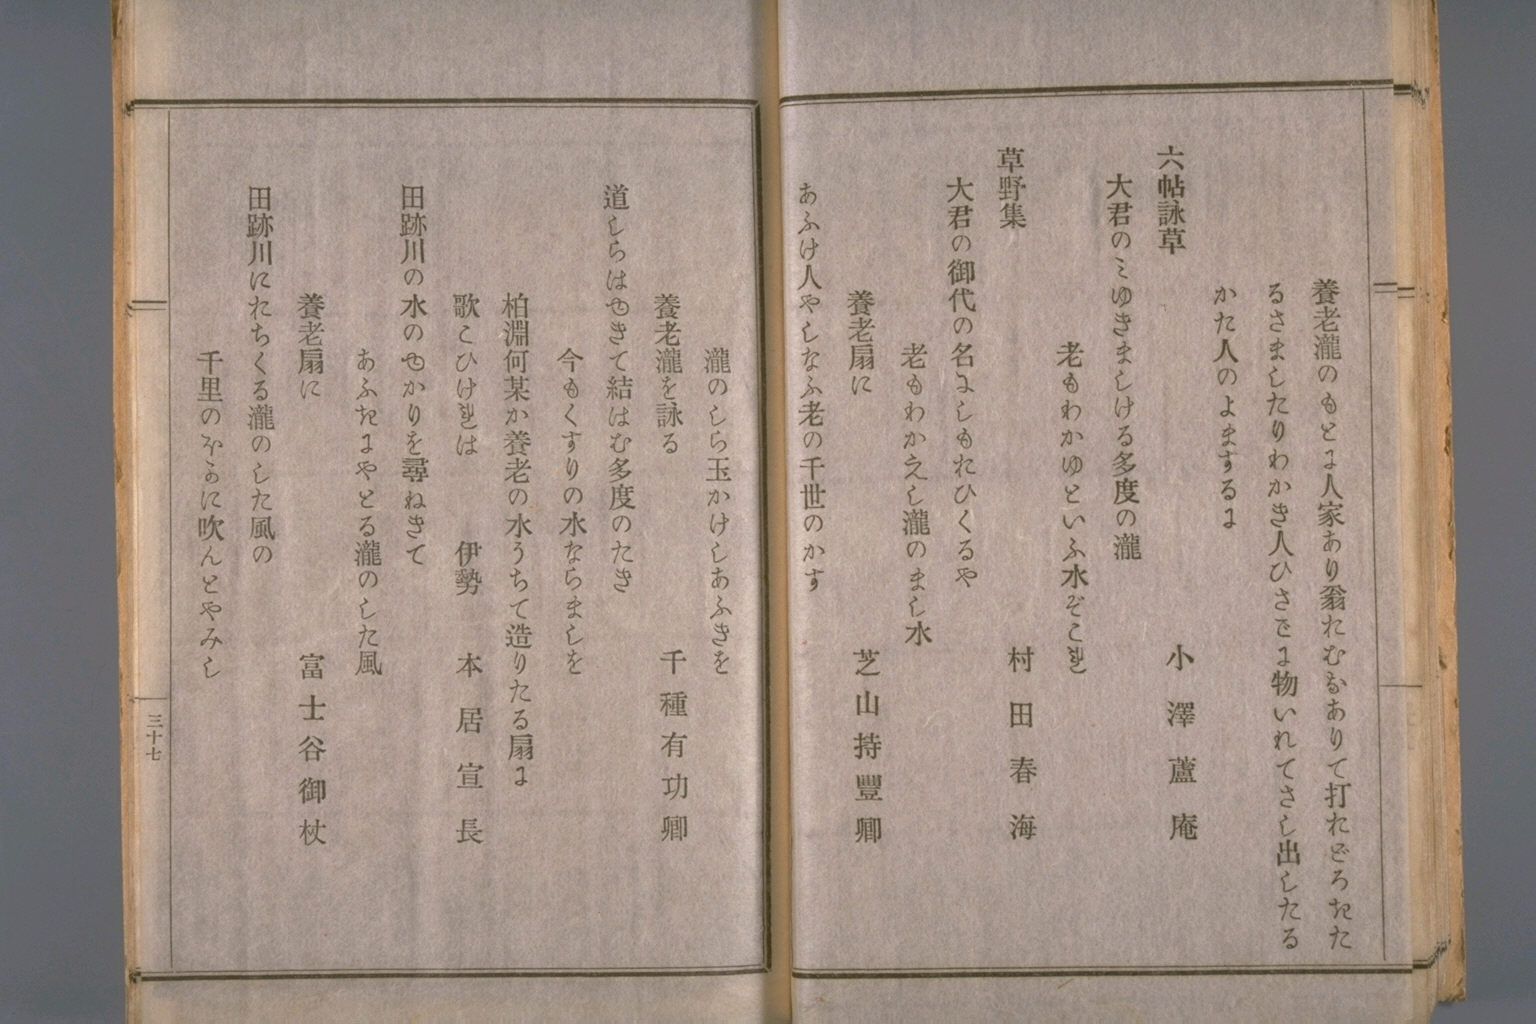 養老瀧のもとに人家あり翁おむなありて打おどろきた
るさましたりわかき人ひさごに物いれてさし出したる
かた人のよまするに
六帖詠草
小澤蘆庵
大君のミゆきましける多度の瀧
老もわかゆといふ水ぞこれ
草野集
村田春海
大君の御代の名にしもおひくるや
老もわかえし瀧のまし水
養老扇に
芝山持豐卿
あふけ人やしなふ老の千世のかす
瀧のしら玉かけしあふきを
養老瀧を詠る
千種有功卿
道しらはゆきて結はむ多度のたき
今もくすりの水ならましを
柏淵何某か養老の水うちて造りたる扇に
歌こひけれは
伊勢 本居宣長
田跡川の水のゆかりを尋ねきて
あふきにやとる瀧のした風
養老扇に
富士谷御杖
田跡川におちくる瀧のした風の
千里のほかに吹んとやみし
三十七